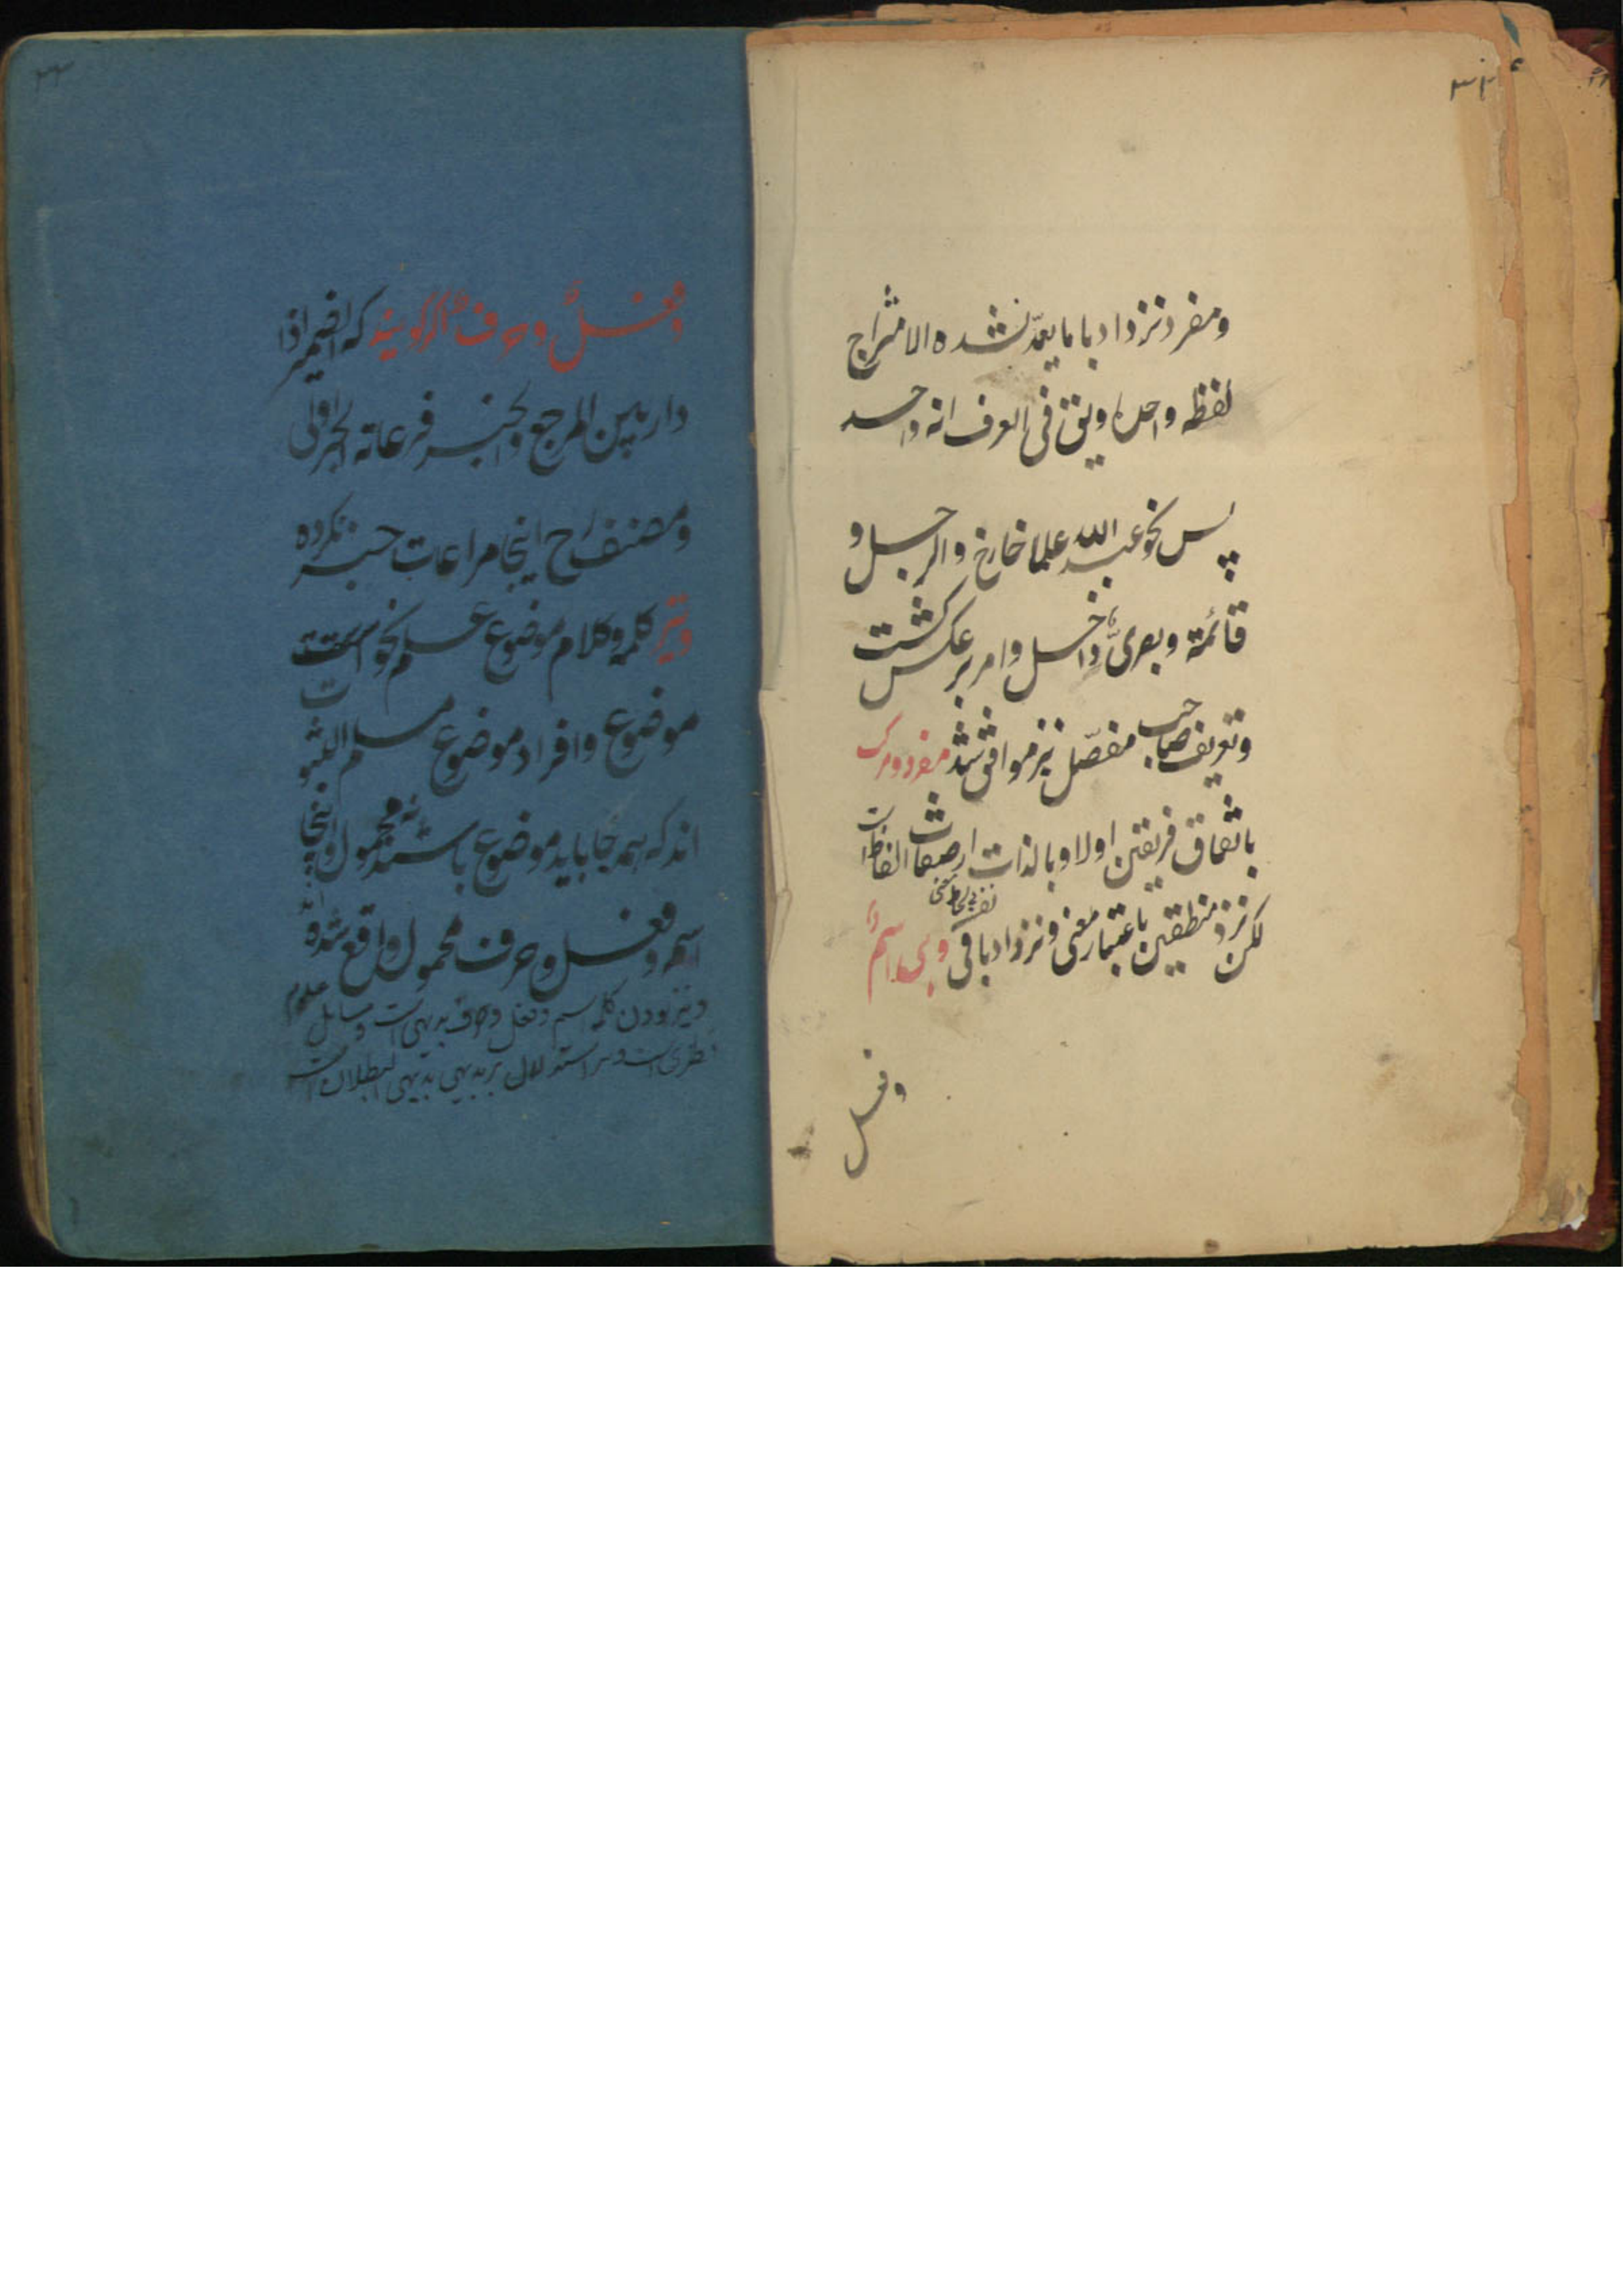 ومفرد نزد ادبا ما یعدّ لشده الامتزاج
لفظه واحدا ویق فی العرف انه واحد
پس نحو عبد الله علما خارج والرجل و
قائمة وبصریّ داخل وامر بر عکس گشت
وتعریف صاحب مفصّل نیز موافق شد مفرد ومرکب
باتفاق فریقین اولا وبالذات از صفات الفاظ است
لکن نزد منطقین باعتبار معنی ونزد ادبا فی
وهی اسم
وفعل
وفعل وحرف اگر گویند که الضمیر اذا
دار بین المرجع والخبر فرعایة الخبر اولی
ومصنف رح اینجا مراعات خبر نکرده
ونیز کلمه وکلام موضوع علم نحو است
موضوع وافراد موضوع مسلم الثبو
ت
اند که همه جا باید موضوع باشند نه محمول واینجا
اسم وفعل وحرف محمول واقع شده
ونیز بودن کلمه اسم وفعل وحرف بدیهی است ومسایل علوم
نظری است واستدلال بر بدیهی بدیهی البطلان است